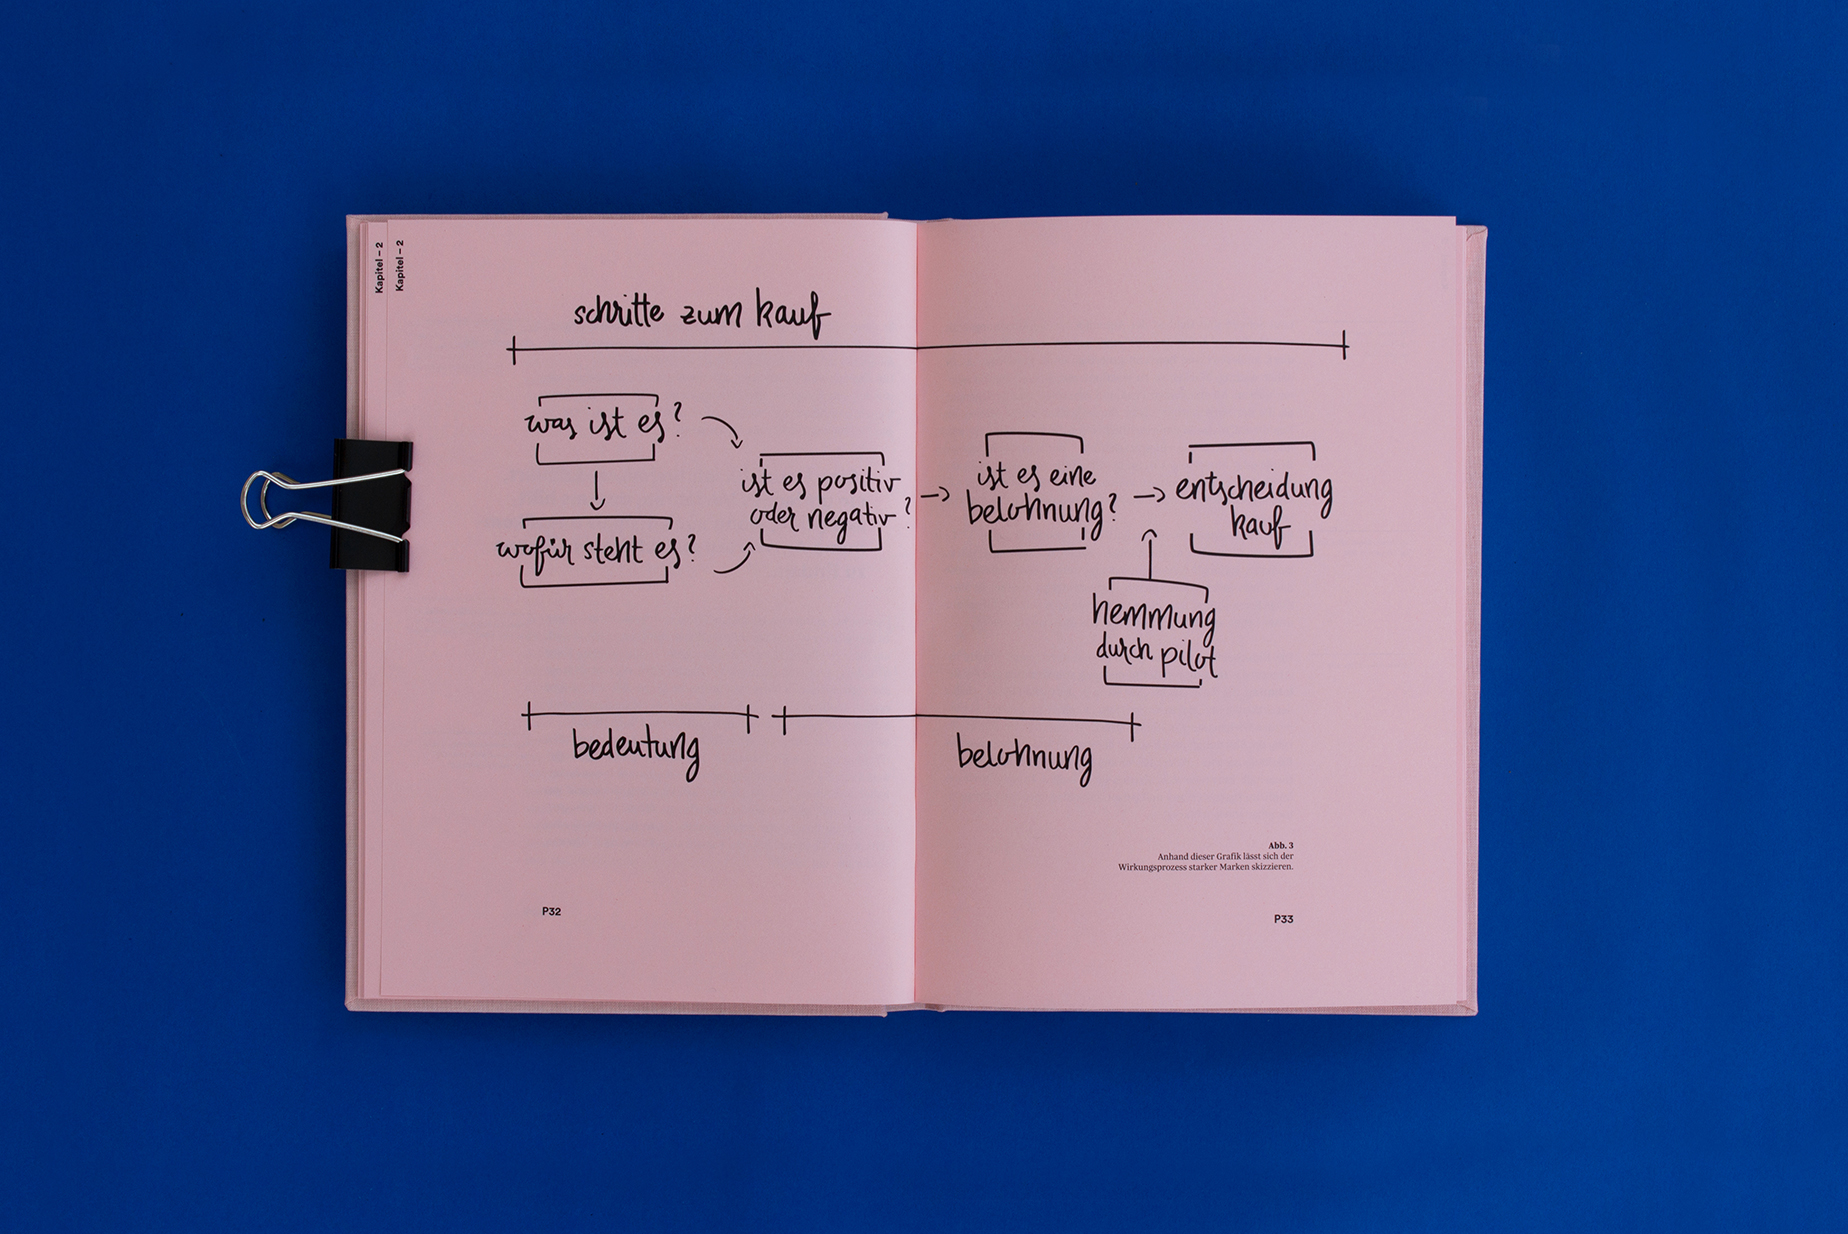 Kapitel – 2
Kapitel – 2
schritte zum kauf
was ist es?
wofür steht es?
ist es positiv
oder negativ?
ist es eine
belohnung?
entscheidung
kauf
hemmung
durch pilot
bedeutung
belohnung
Abb. 3
Anhand dieser Grafik lässt sich der
Wirkungsprozess starker Marken skizzieren.
P32
P33